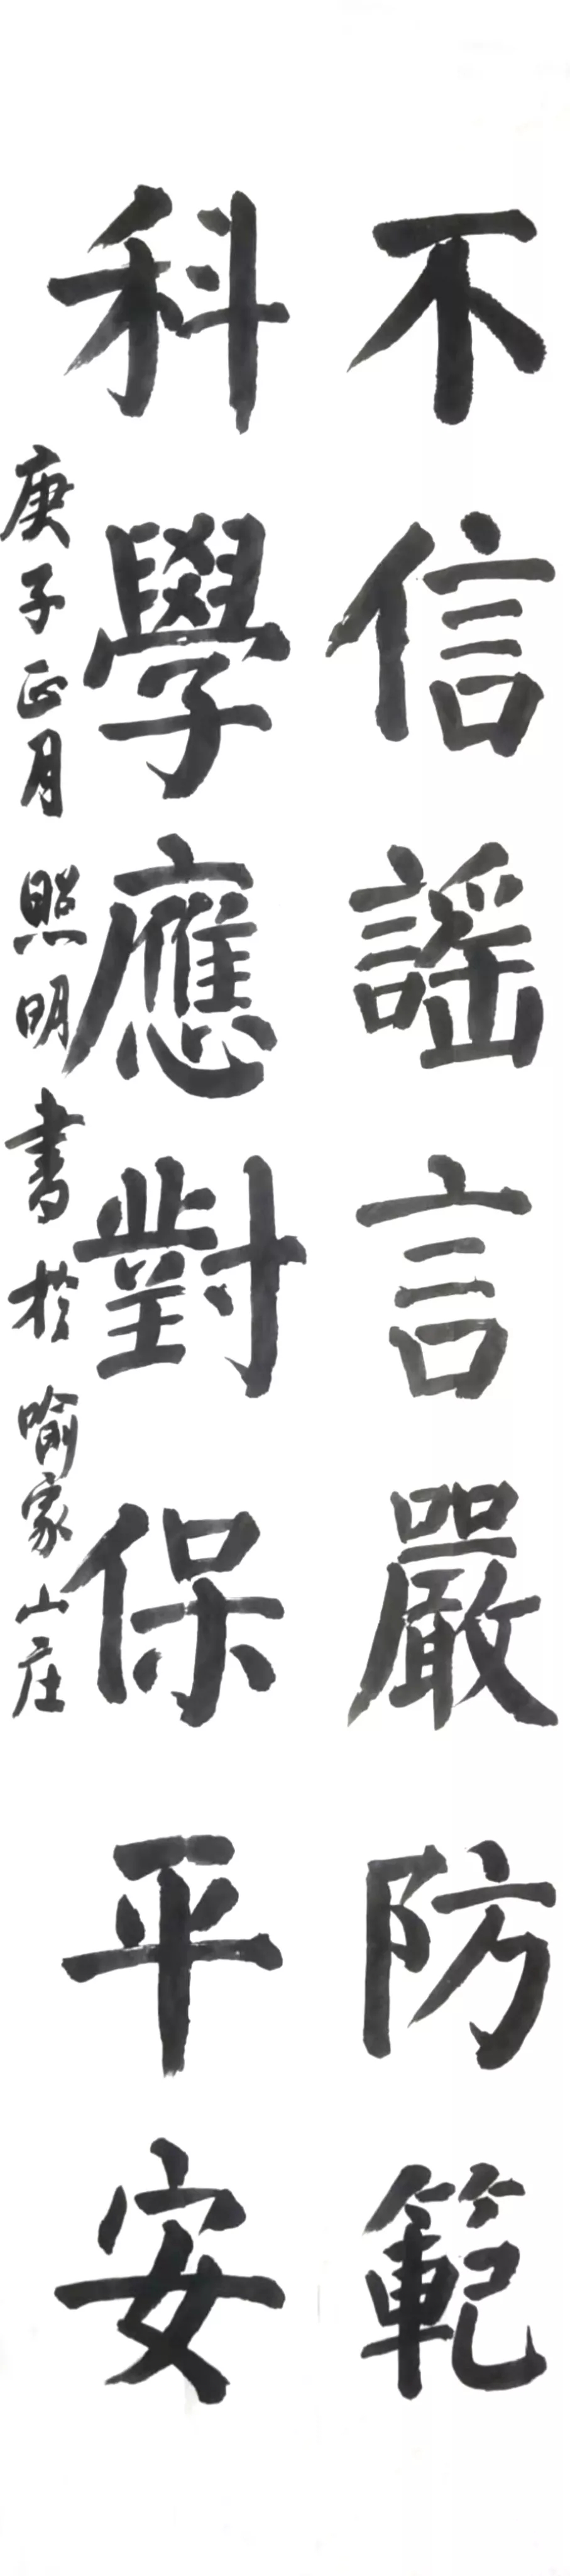 不信謡言嚴防範
科學應對保平安
庚子正月照明書於喻家山庄